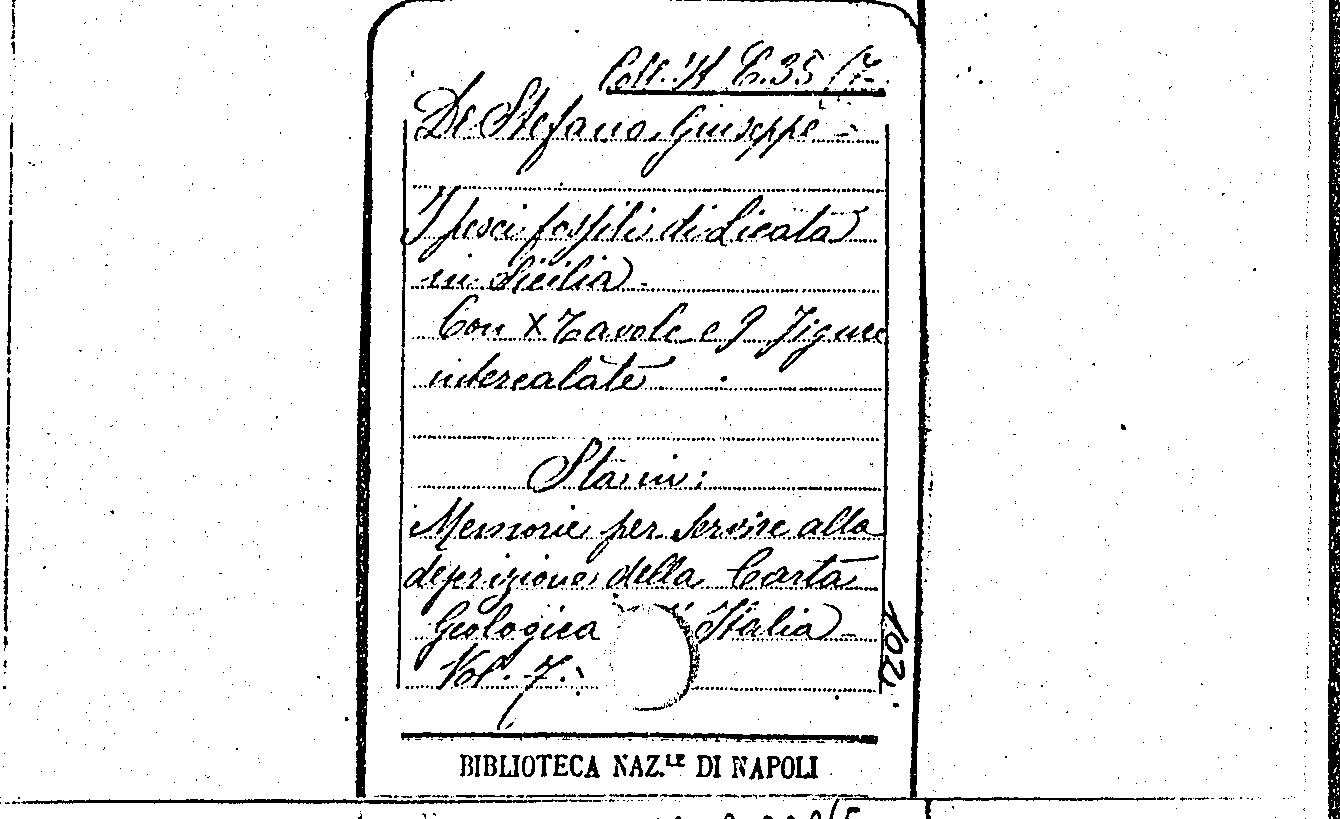 Coll. It E.35 (7.
De Stefano, Giuseppe -
I pesci fossili di Licata
in Sicilia.
Con X Tavole e 9 Figure
intercalate.
Sta in:
Memorie per servire alla
descrizione della Carta
Geologica d'Italia -
Vol. 7.
102
BIBLIOTECA NAZ.LE DI NAPOLI